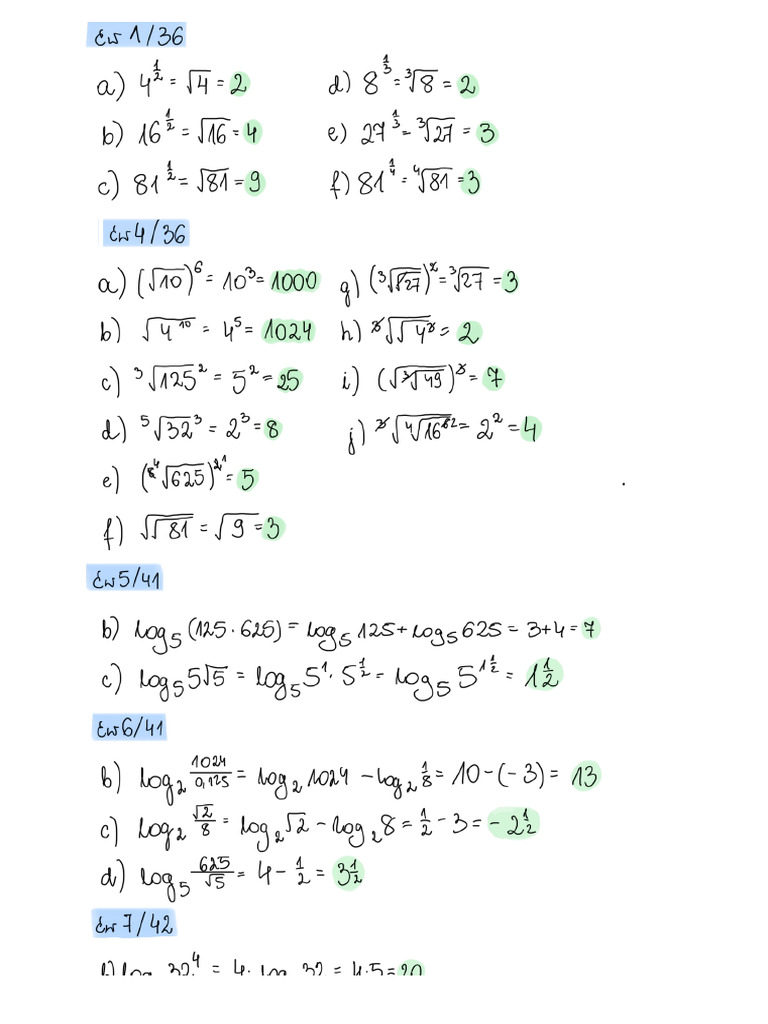 Ćw 1/36
a) 4^{1/2} = √4 = 2
d) 8^{1/3} = ∛8 = 2
b) 16^{1/2} = √16 = 4
e) 27^{1/3} = ∛27 = 3
c) 81^{1/2} = √81 = 9
f) 81^{1/4} = ∜81 = 3
Ćw 4/36
a) (√10)^6 = 10^3 = 1000
g) (∛√27)^2 = ∛27 = 3
b) √(4^{10}) = 4^5 = 1024
h) ∛√(√4^3) = 2
c) ∛125^2 = 5^2 = 25
i) (√∛49)^3 = 7
d) ⁵√32^3 = 2^3 = 8
j) = 2^2 = 4
e) (√625)^{2 1} = 5
f) √√81 = √9 = 3
Ćw 5/41
b) log_5 (125 · 625) = log_5 125 + log_5 625 = 3+4 = 7
c) log_5 5√5 = log_5 5^1 · 5^{1/2} = log_5 5^{1 1/2} = 1 1/2
Ćw 6/41
b) log_2 1024/0,125 = log_2 1024 - log_2 1/8 = 10 - (-3) = 13
c) log_2 √2/8 = log_2 √2 - log_2 8 = 1/2 - 3 = -2 1/2
d) log_5 625/√5 = 4 - 1/2 = 3 1/2
Ćw 7/42
32^4 = 4· 32 = 4·5 = 20